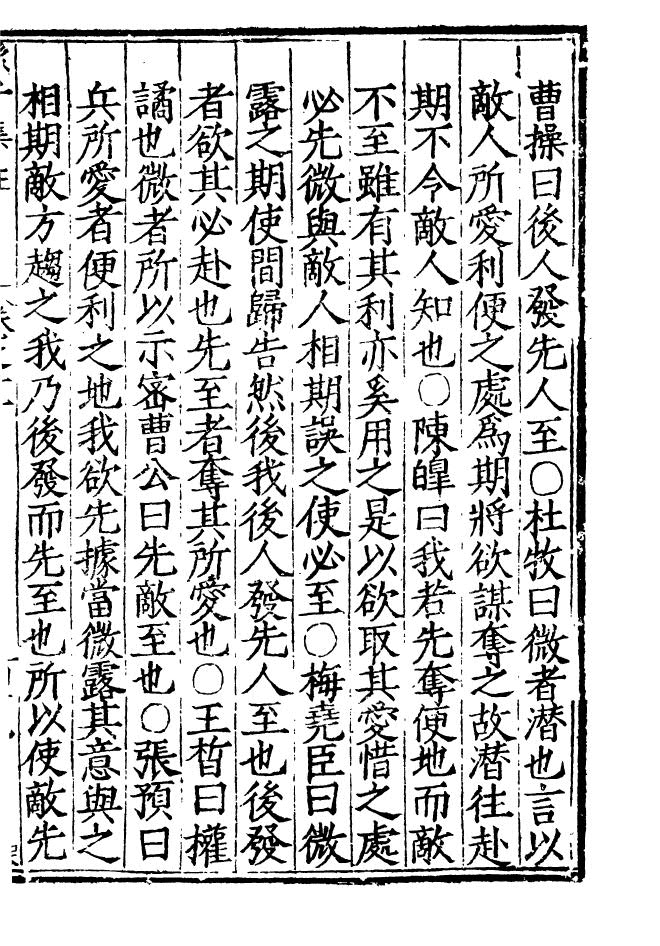 曹操曰後人發先人至○杜牧曰微者潛也言以
敵人所愛利便之處爲期將欲謀奪之故潛往赴
期不令敵人知也○陳皥曰我若先奪便地而敵
不至雖有其利亦奚用之是以欲取其愛惜之處
必先微與敵人相期誤之使必至○梅堯臣曰微
露之期使間歸告然後我後人發先人至也後發
者欲其必赴也先至者奪其所愛也○王晳曰權
譎也微者所以示密曹公曰先敵至也○張預曰
兵所愛者便利之地我欲先據當微露其意與之
相期敵方趨之我乃後發而先至也所以使敵先